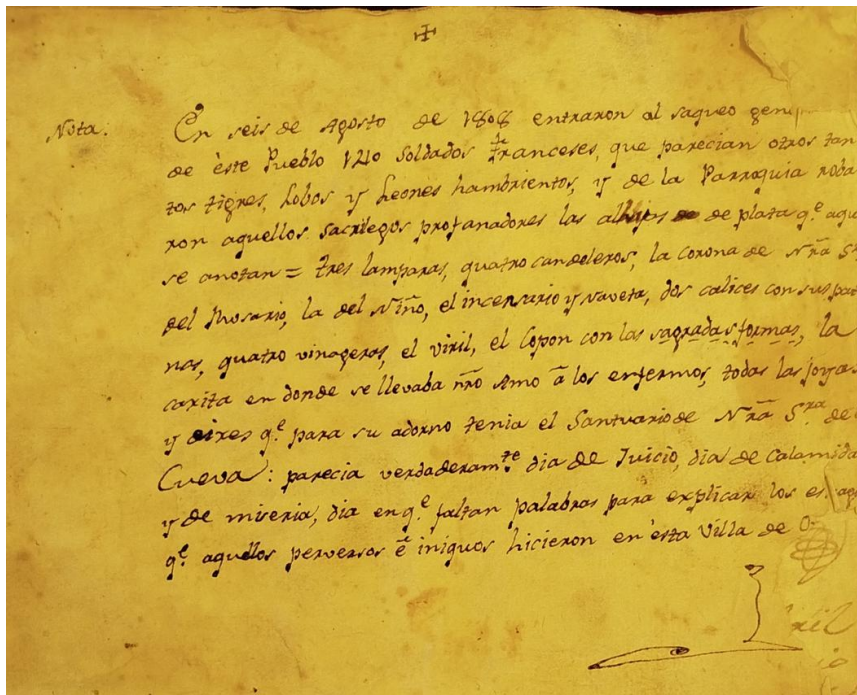 Nota.
En seis de Agosto de 1808 entraron al saqueo gen
de èste Pueblo 1240 Soldados franceses, que parecian otros tan
tos tigres, Lobos y Leones hambrientos, y de la Parroquia roba
ron aquellos sacrilegos profanadores las alhajas de plata q.e aqu
se anotan = tres lamparas, quatro candeleros, la corona de Nrã S
del Rosario, la del Niño, el incensario y naveta, dos calices con sus pat
nas, quatro vinageras, el viril, el Copon con las sagradas formas, la
caxita en donde se llevaba nr̃o Amo â los enfermos, todas las joyas
y dixes q.e para su adorno tenia el Santuario de Nrã S.ra de
Cueva: parecia verdaderam.te dia de Juicio, dia de Calamida
y de miseria, dia en q.e faltan palabras para explicar los
q.e aquellos perversos ê iniquos hicieron en èsta Villa de